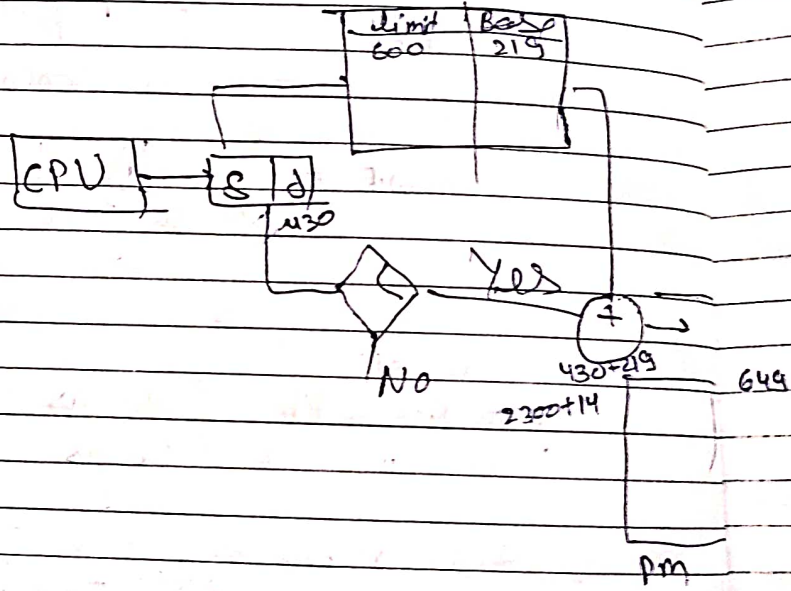 Limit Base
600 219
CPU
S d
430
<
Yes
+
No
430+219
649
2300+14
pm